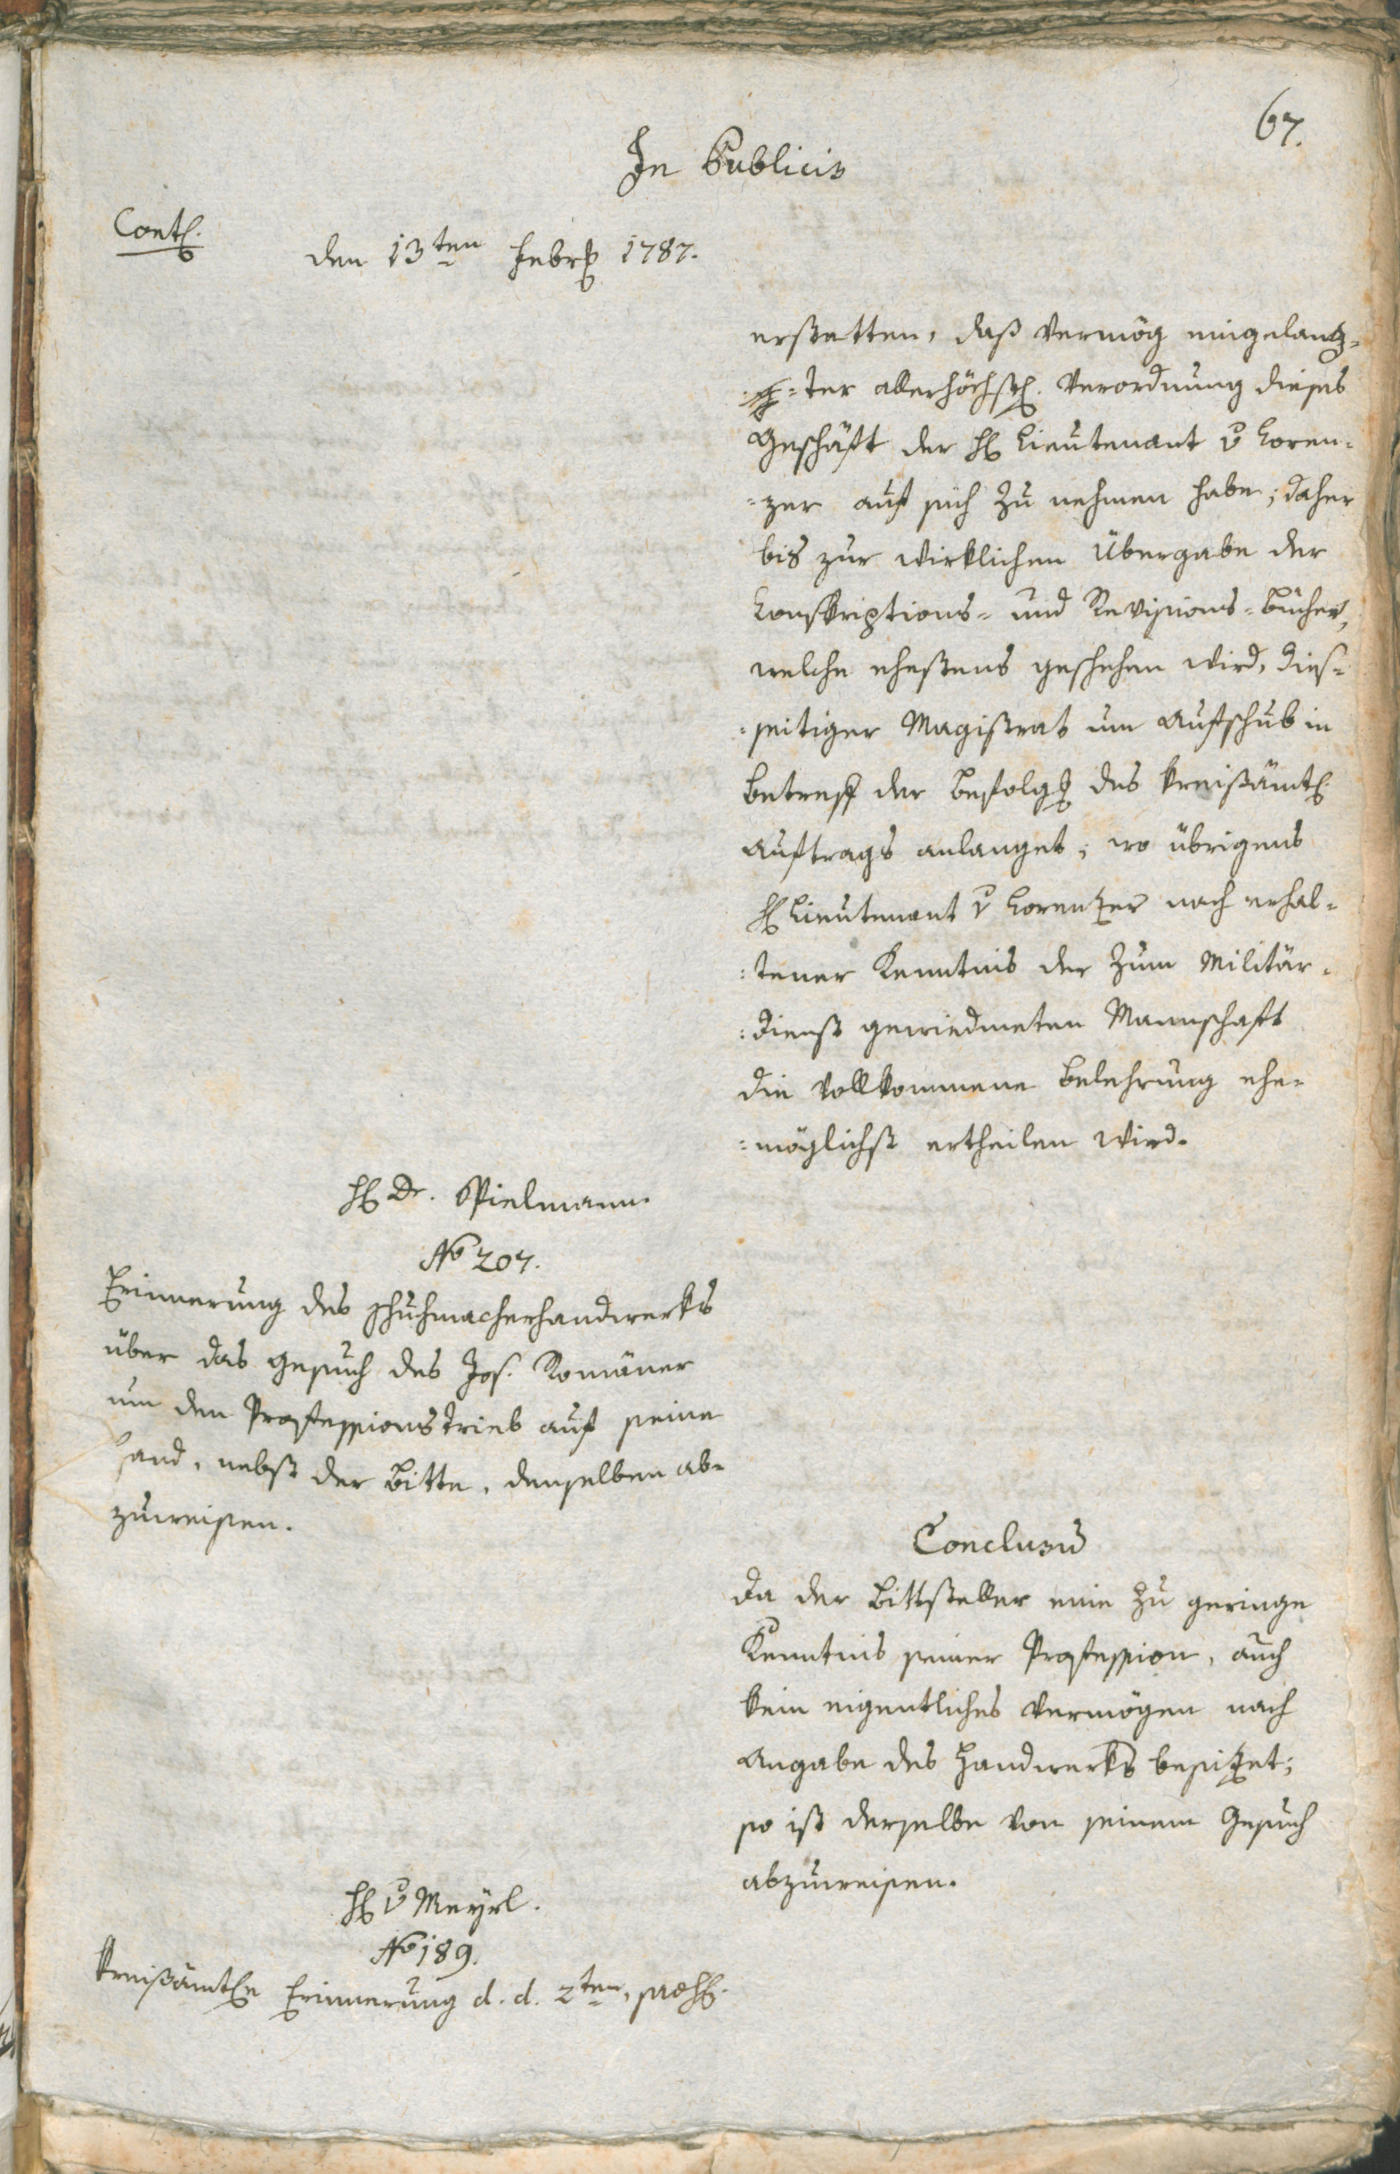 67.
In Publicis
Cont.
den 13ten Febr. 1787.
erstatten, daß vermög eingelang¬
=ter allerhöchst. Verordnung dieses
Geschäft der H. Lieutenant v Loren¬
=zer auf sich zu nehmen habe; daher
bis zur wirklichen Übergabe der
Konskriptions= und Revisions=Bücher,
welche ehestens geschehen wird, dies=
=seitiger Magistrat um Aufschub in
Betreff der Befolgg des kreißämtl.
Auftrags anlanget; wo übrigens
H. Lieutenant v Lorenzer nach erhal=
=tener Kenntnis der zum Militär=
=dienst gewiedmeten Mannschaft
die vollkommene Belehrung ehe=
=möglichst ertheilen wird.
H. Dr. Spielmann.
No 207.
Erinnerung des Schuhmacherhandwerks
über das Gesuch des Jos. Romäner
um den Professionstrieb auf seine
Hand, nebst der Bitte, denselben ab=
zuweisen.
Conclusū
Da der Bittsteller eine zu geringe
Kenntnis seiner Profession, auch
kein eigentliches Vermögen nach
Angabe des Handwerks besitzet;
so ist derselbe von seinem Gesuch
abzuweisen.
H. v Meyrl.
No 189.
Kreißämtle Erinnerung d. d. 2ten,